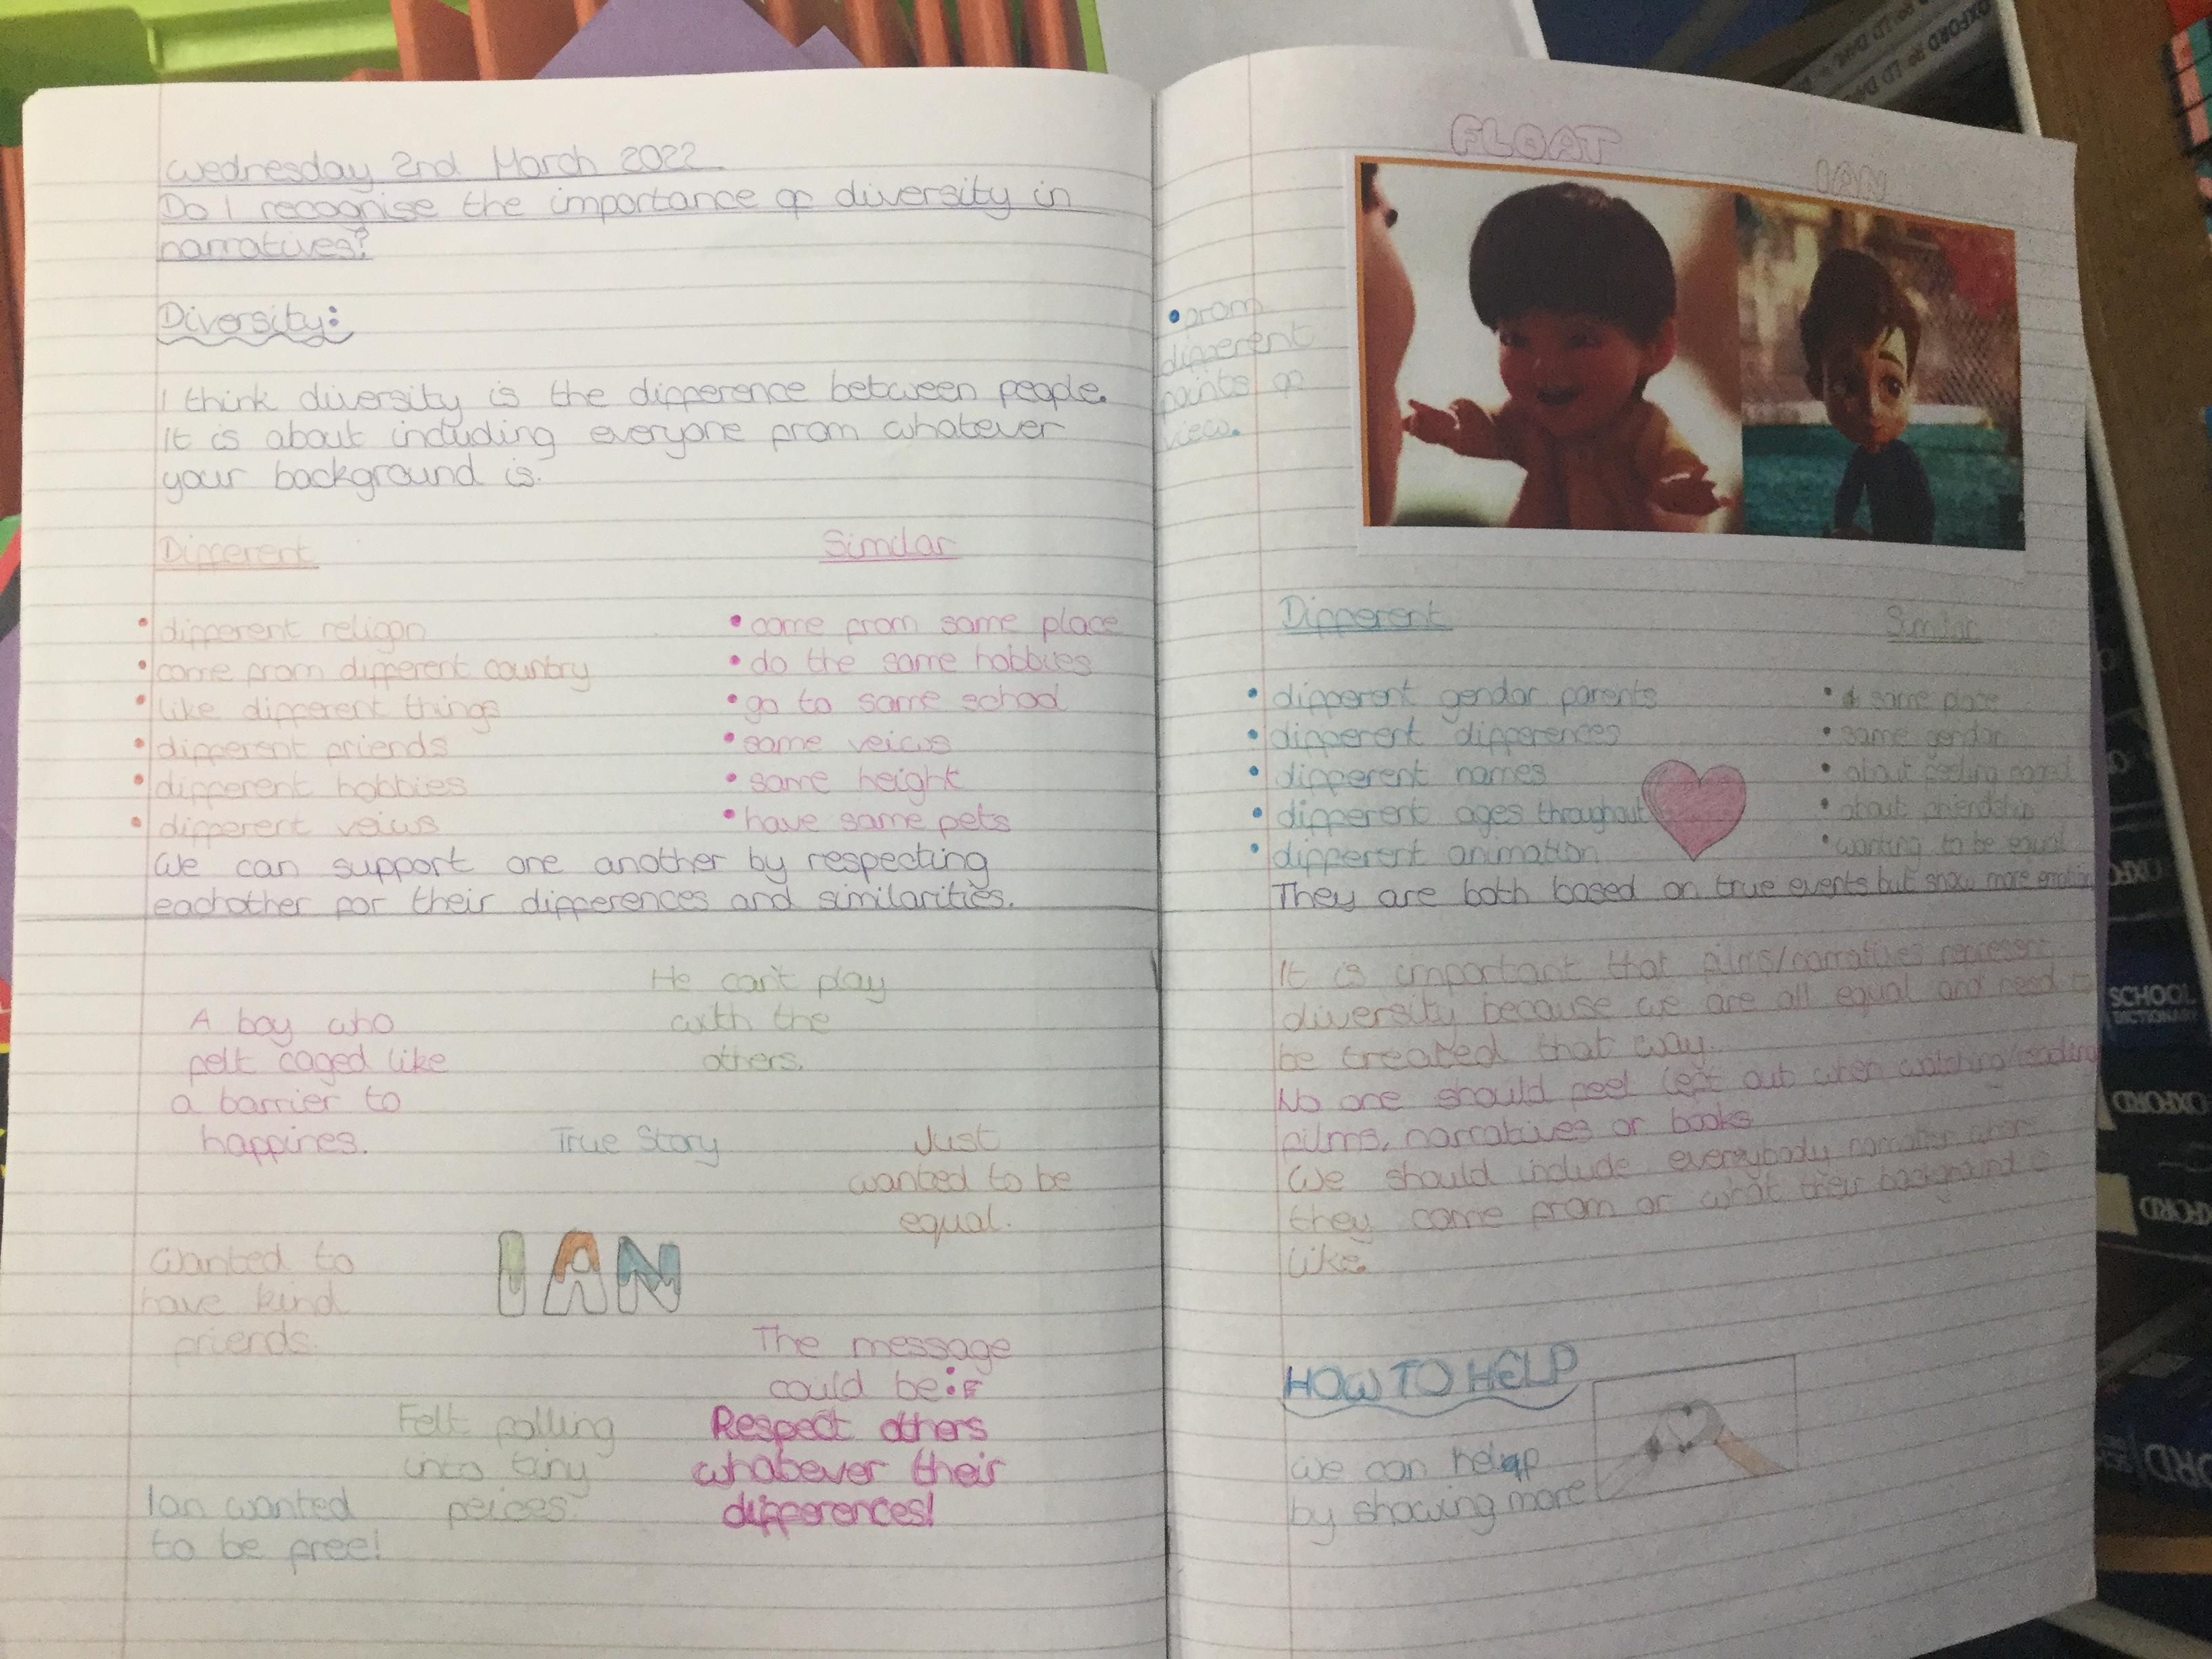 Wednesday 2nd March 2022
Do I recognise the importance of diversity in
narratives?
Diversity:
I think diversity is the difference between people.
It is about including everyone from whatever
your background is.
Different
• different religon
• come from different country
• like different things
• different friends
• different hobbies
• different veiws
Similar
• come from same place
• do the same hobbies
• go to same school
• same veiws
• same height
• have same pets
We can support one another by respecting
eachother for their differences and similarities.
He can't play
with the
others.
A boy who
felt caged like
a barrier to
happines.
True Story
Just
wanted to be
equal.
Wanted to
have kind
friends.
IAN
The message
could be:
Respect others
whatever their
differences!
Felt falling
into tiny
peices.
Ian wanted
to be free!
FLOAT
IAN
• from
different
points of
view.
Different
• different gendar parents
• different differences
• different names
• different ages throughout
• different animation
Similar
• same place
• same gendar
• about feeling caged
• about friendship
• wanting to be equal
They are both based on true events but show more
It is important that films/narratives represent
diversity because we are all equal and need to
be treated that way.
No one should feel left out when watching/reading
films, narratives or books
We should include everybody where
they come from or what their background is
like.
HOW TO HELP
We can help
by showing more
OXFORD
OXFORD
SCHOOL
DICTIONARY
OXFORD